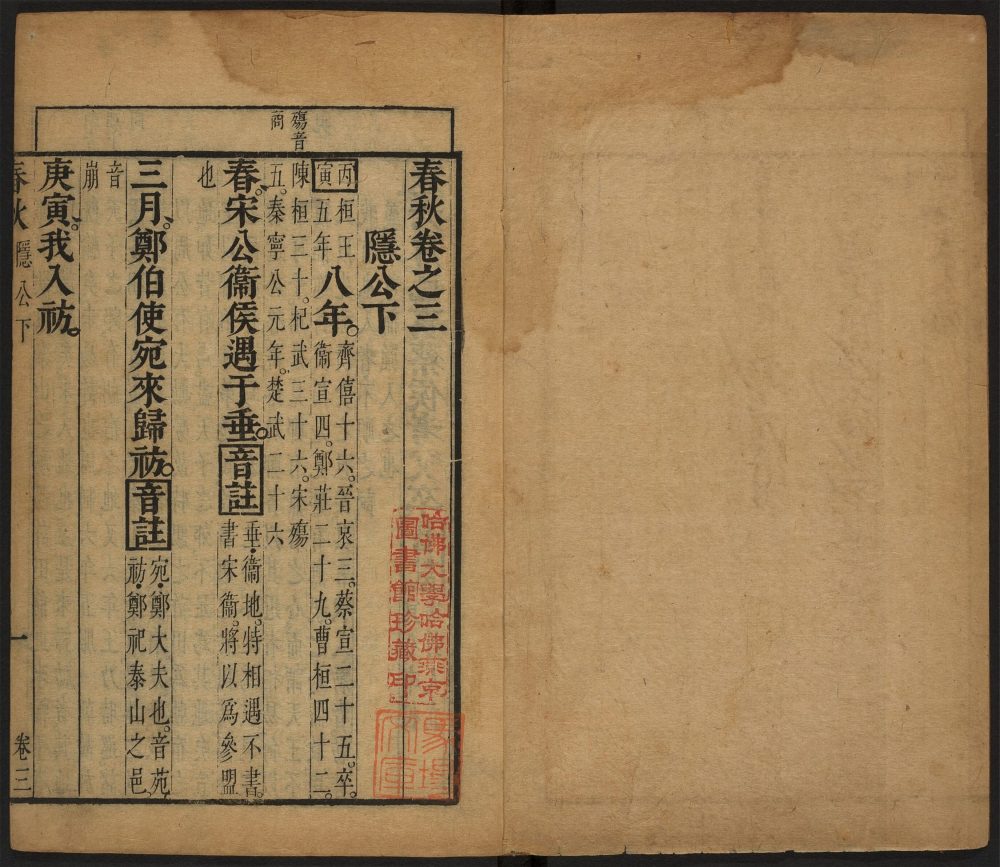 春秋卷之三
隱公下
丙寅
桓王
五年
八年。
齊僖十六。晉哀三。蔡宣二十五。卒。
衞宣四。鄭莊二十九。曹桓四十二。
陳桓三十。杞武三十六。宋殤
五。秦寧公元年。楚武二十六
殤音
商
春。宋公衞侯遇于垂。音註
垂。衞地。特相遇不書。
書宋衞。將以爲參盟
也
三月。鄭伯使宛來歸祊。音註
宛。鄭大夫也。音苑。
祊。鄭祀泰山之邑。
音
崩
庚寅。我入祊。
春秋
隱公下
一
卷三
哈佛大學哈佛燕京
圖書館珍藏印